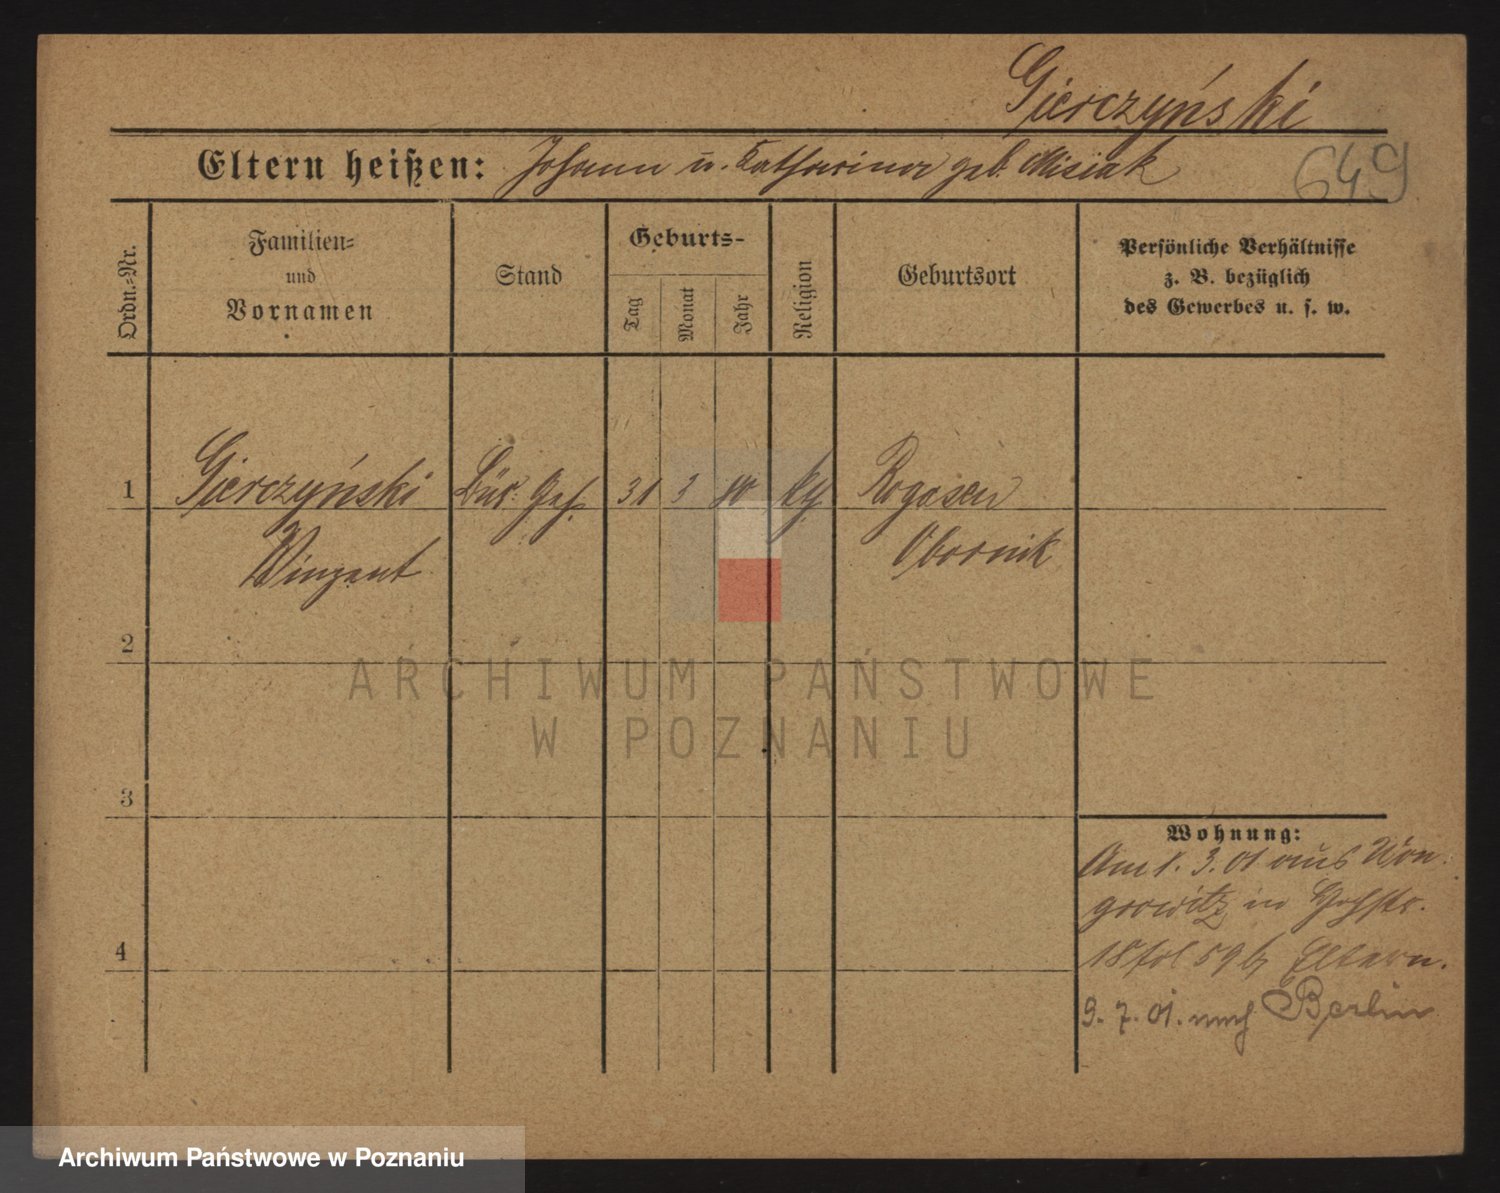 Gierczyński
Eltern heißen: Johann u. Katharina geb. Misiak
649
Ordn.-Nr.
Familien-
und
Vornamen
Stand
Geburts-
Tag
Monat
Jahr
Religion
Geburtsort
Persönliche Verhältnisse
z. B. bezüglich
des Gewerbes u. s. w.
1
Gierczyński
Bür. Geh.
31
3
Rogasen
Winzent
Obornik
2
ARCHIWUM PAŃSTWOWE
W POZNANIU
3
Wohnung:
Am 1. 3. 01 aus Won-
growitz in
18 Eltern.
4
9. 7. 01. nach Berlin
Archiwum Państwowe w Poznaniu